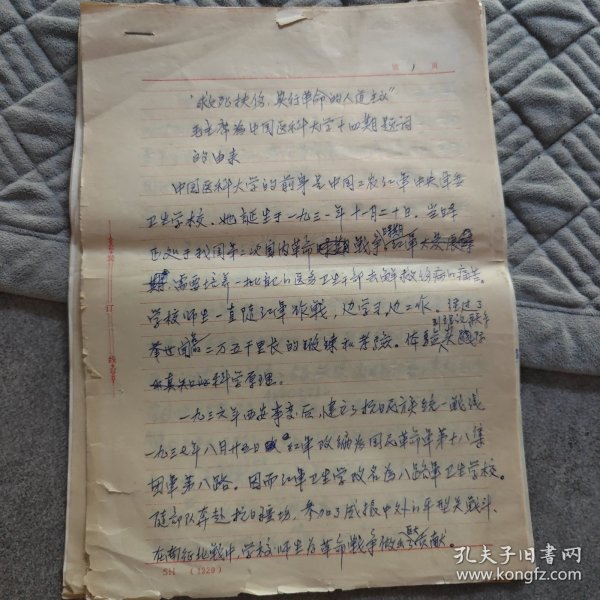 第 1 页
"救死扶伤,实行革命的人道主义"
毛主席为中国医科大学十四期题词
的由来
中国医科大学的前身是中国工农红军中央军委
卫生学校,她诞生于一九三一年十一月二十日。当时
正处于我国第二次国内革命战争
需要培养一批自己的医务卫生干部去解救伤病的痛苦。
学校师生一直随红军作战,边学习边工作。经过了
举世闻名二万五千里长的锻炼和考验。体验
一九三六年西安事变后,建立了抗日民族统一战线
一九三七年八月廿五日红军改编为国民革命军第十八集
团军第八路。因而红军卫生学校改名为八路军卫生学校。
随部队奔赴抗日疆场,参加了威振中外的平型关战斗。
在南征北战中,学校师生为革命战争做出贡献。
装订线
SH (1229)
孔夫子旧书网
www.kongfz.com